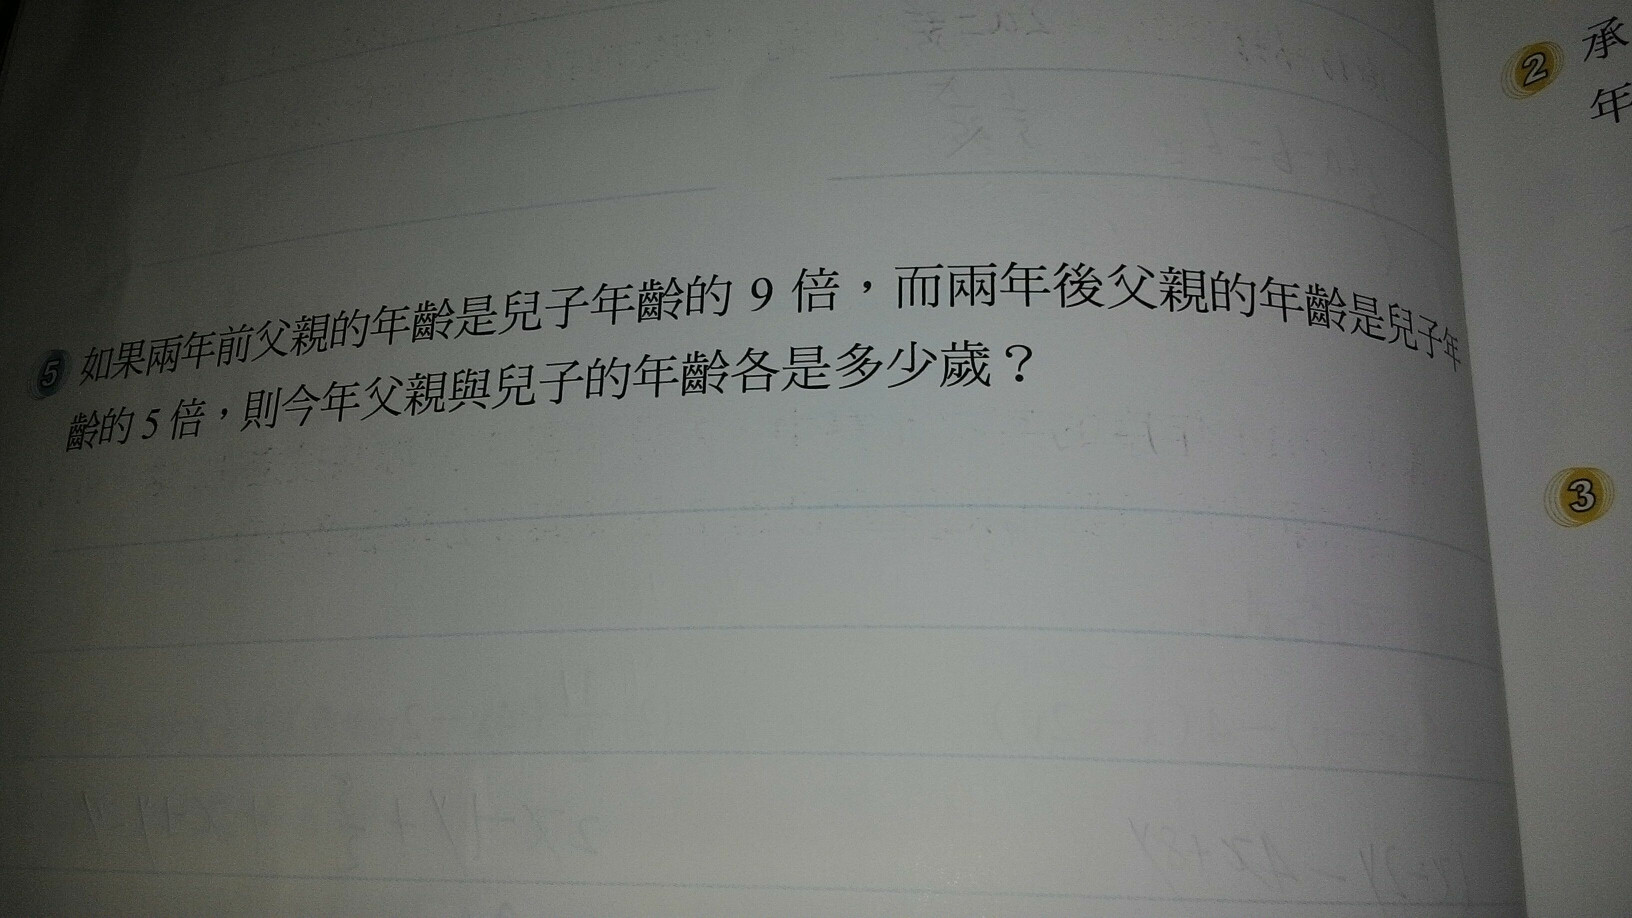 5 如果兩年前父親的年齡是兒子年齡的 9 倍，而兩年後父親的年齡是兒子年
齡的 5 倍，則今年父親與兒子的年齡各是多少歲？
2 承
年
3